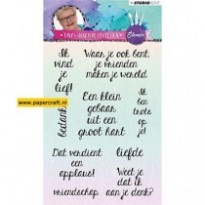 STUDIO LIGHT
Ik
vind
je
lief!
Waar je ook bent,
je vrienden
maken je wereld
www.papercraft.nl
bedankt
Een klein
gebaar
uit een
groot hart
Ik
ben
trots
op
je!
Dat verdient
een
applaus!
vriendschap
liefde
Weet je
dat ik
aan je denk?